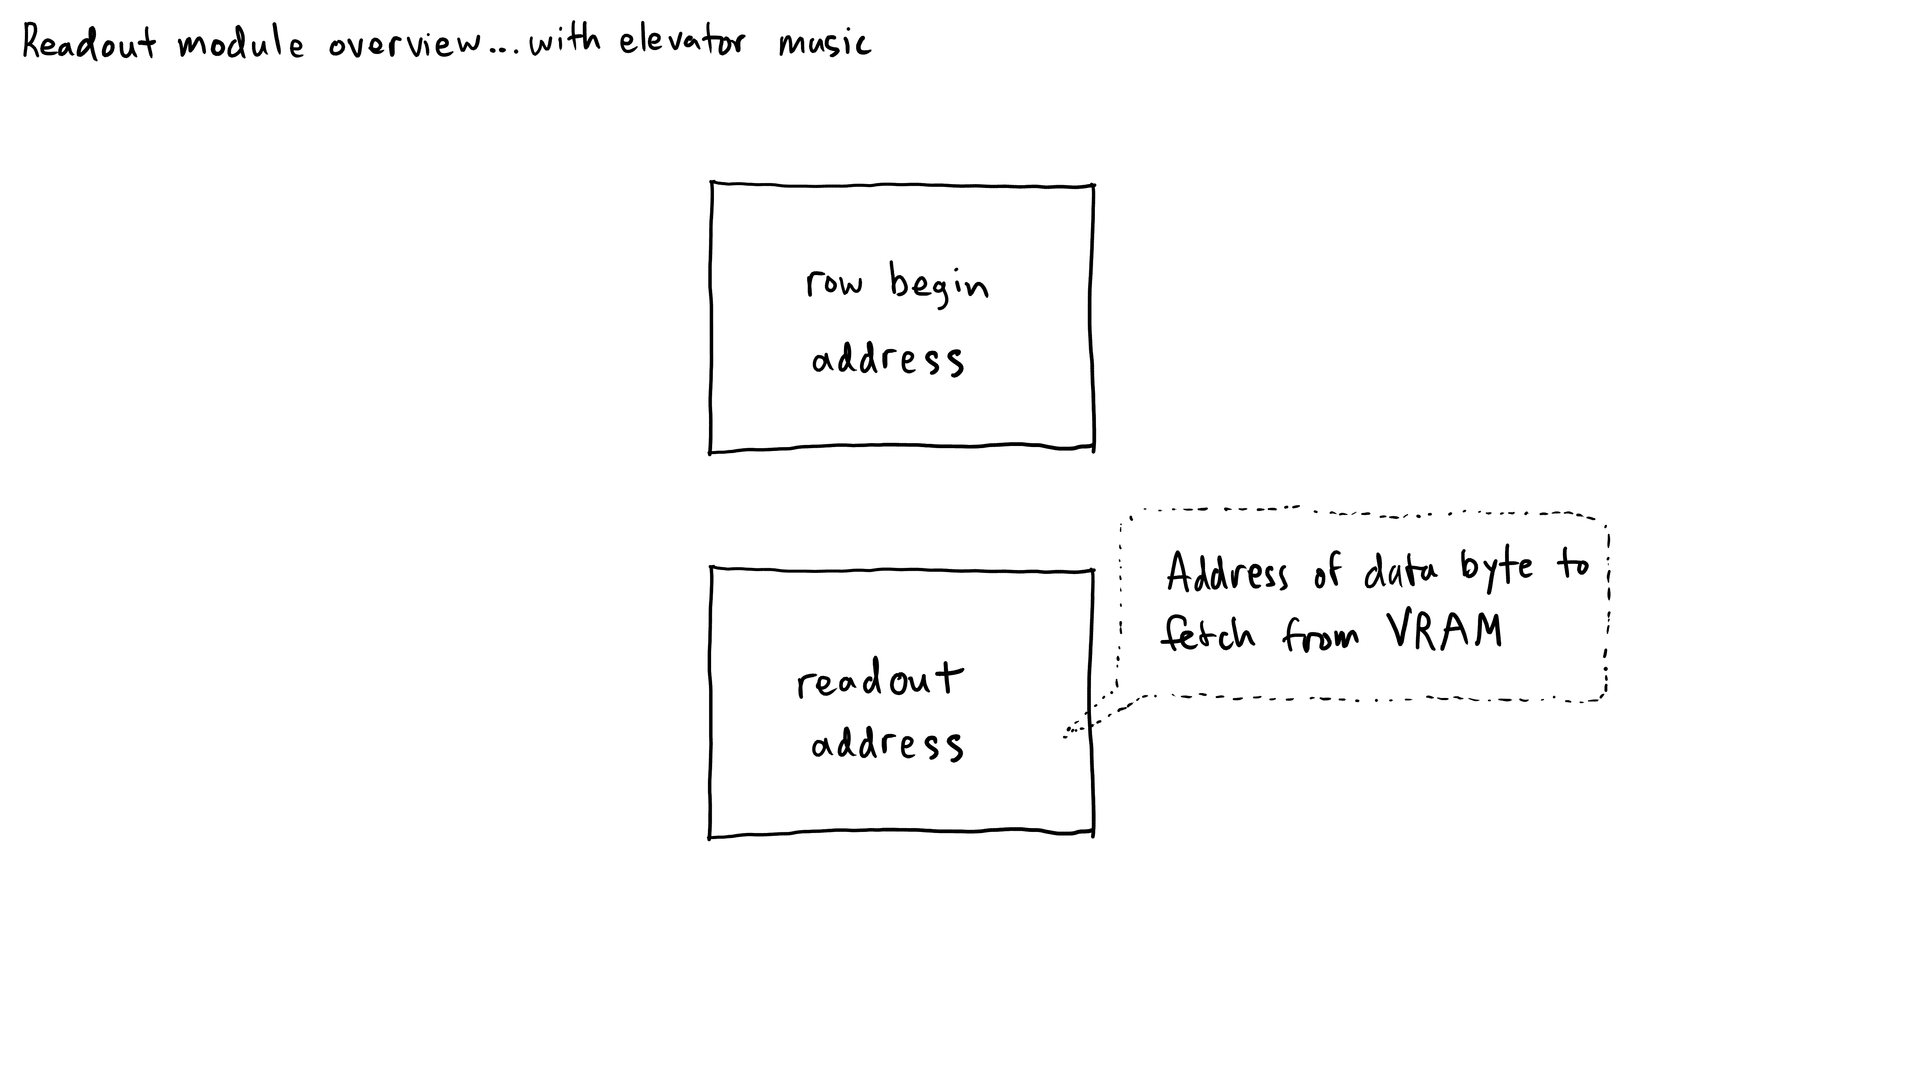 Readout module overview...with elevator music
row begin
address
readout
address
Address of data byte to
fetch from VRAM